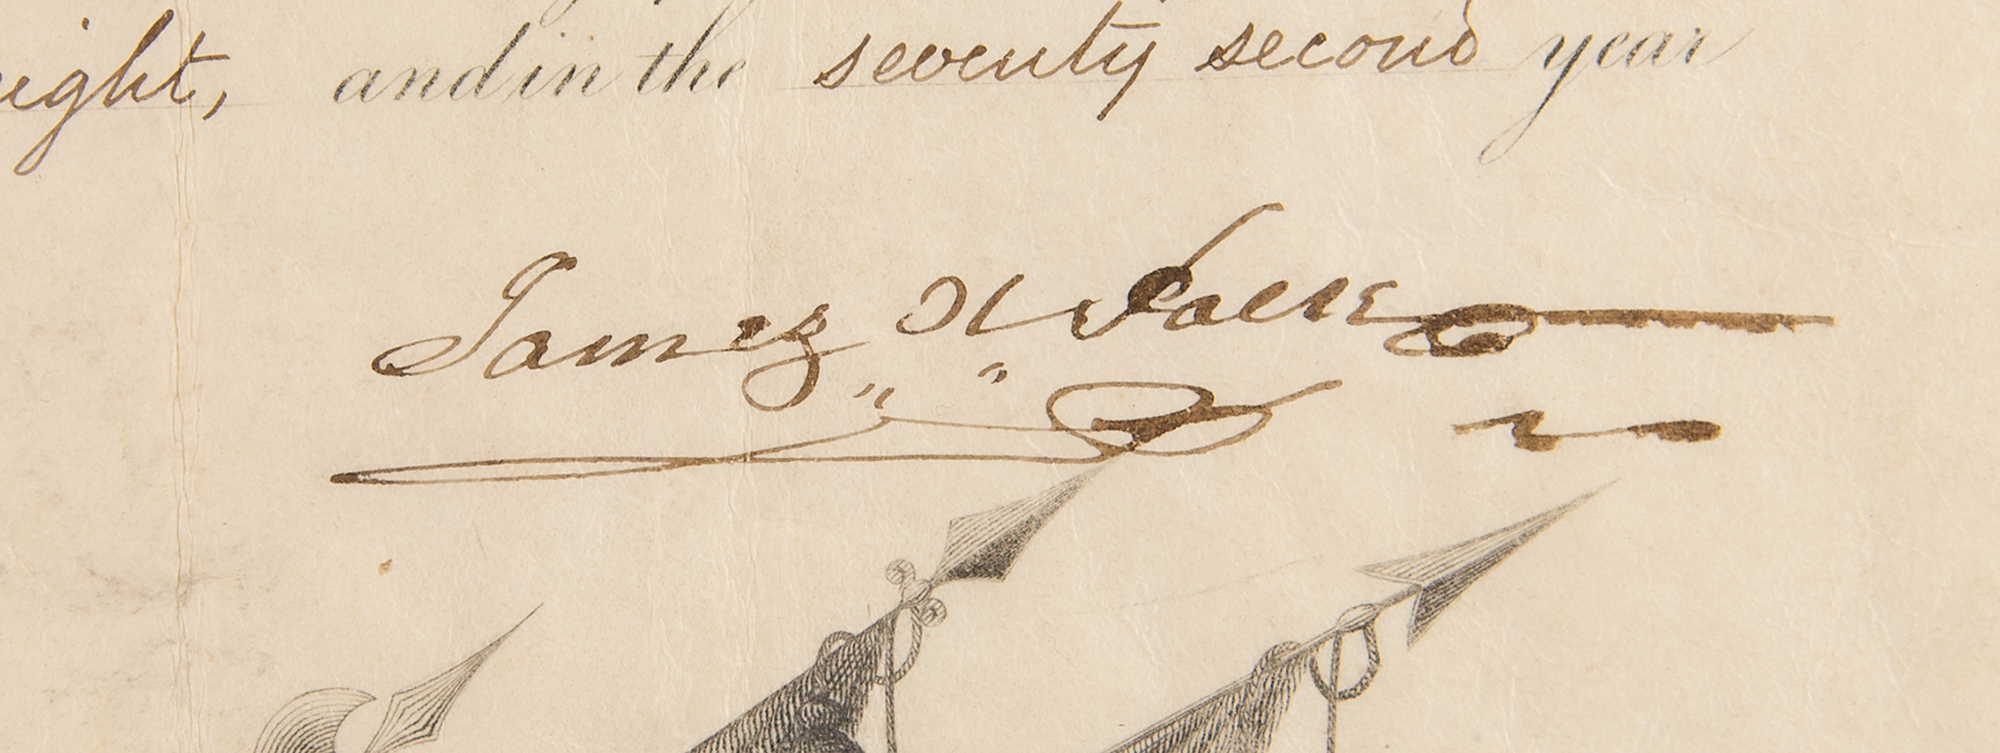 eight, and in the seventy second year
James K Polk